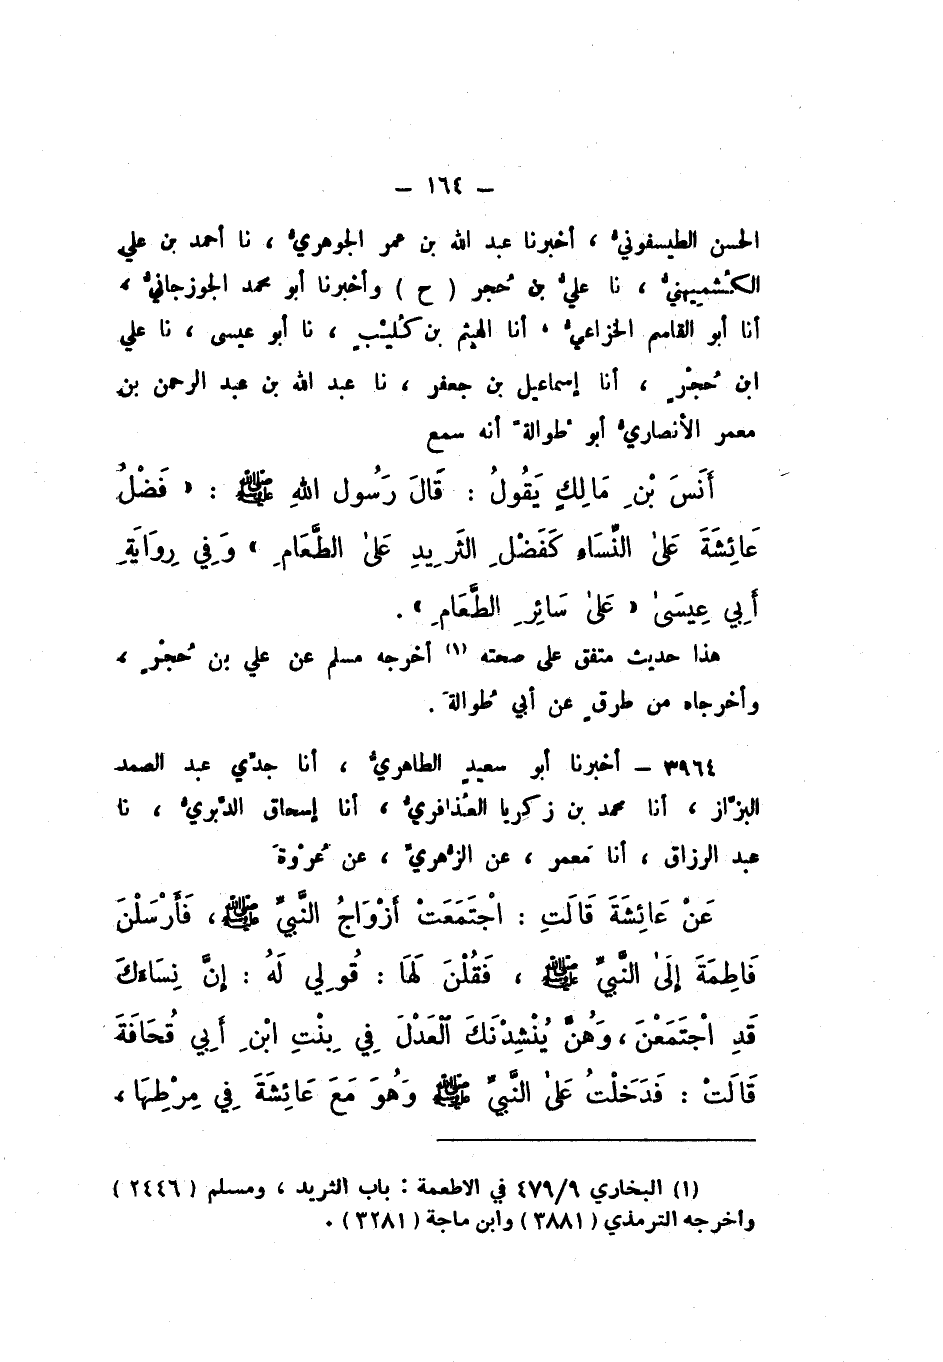 — ١٦٤ —
الحسن الطيسفونيُّ ، أخبرنا عبد الله بن عمر الجوهريُّ ، نا أحمد بن علي
الكُشميهنيُّ ، نا عليُّ بن حُجر ( ح ) وأخبرنا أبو محمد الجوزجانيُّ ،
أنا أبو القاسم الخزاعيُّ ، أنا الهيثم بن كُلَيْبٍ ، نا أبو عيسى ، نا علي
ابن حُجْرٍ ، أنا إسماعيل بن جعفر ، نا عبد الله بن عبد الرحمن بن
معمر الأنصاريُّ أبو طُوالةَ أنه سمع
أَنَسَ بْنِ مَالِكٍ يَقُولُ : قَالَ رَسُول اللهِ ﷺ : « فَضْلُ
عَائِشَةَ عَلىٰ النِّسَاءِ كَفَضْلِ الثَّرِيدِ عَلىٰ الطَّعَامِ » وَفِي رِوَايَةِ
أَبِي عِيسَىٰ « عَلىٰ سَائِرِ الطَّعَامِ » .
هذا حديث متفق على صحته (١) أخرجه مسلم عن علي بن حُجْرٍ ،
وأخرجاه من طرقٍ عن أبي طُوالةَ .
٣٩٦٤ — أخبرنا أبو سعيدٍ الطاهريُّ ، أنا جدّي عبد الصمد
البزّاز ، أنا محمد بن زكريا العُذافريُّ ، أنا إسحاق الدَّبريُّ ، نا
عبد الرزاق ، أنا مَعمر ، عن الزُّهريِّ ، عن عُرْوةَ
عَنْ عَائِشَةَ قَالَتِ : اْجْتَمَعَتْ أَزْوَاجُ النَّبِيِّ ﷺ ، فَأَرْسَلْنَ
فَاطِمَةَ إِلَىٰ النَّبِيِّ ﷺ ، فَقُلْنَ لَهَا : قُولِي لَهُ : إِنَّ نِسَاءَكَ
قَدِ اْجْتَمَعْنَ ، وَهُنَّ يُنْشِدْنَكَ ٱلْعَدْلَ فِي بِنْتِ ابْنِ أَبِي قُحَافَةَ
قَالَتْ : فَدَخَلْتُ عَلىٰ النَّبِيِّ ﷺ وَهُوَ مَعَ عَائِشَةَ فِي مِرْطِهَا ،
(١) البخاري ٤٧٩/٩ في الاطعمة : باب الثريد ، ومسلم ( ٢٤٤٦ )
واخرجه الترمذي ( ٣٨٨١ ) وابن ماجة ( ٣٢٨١ ) .